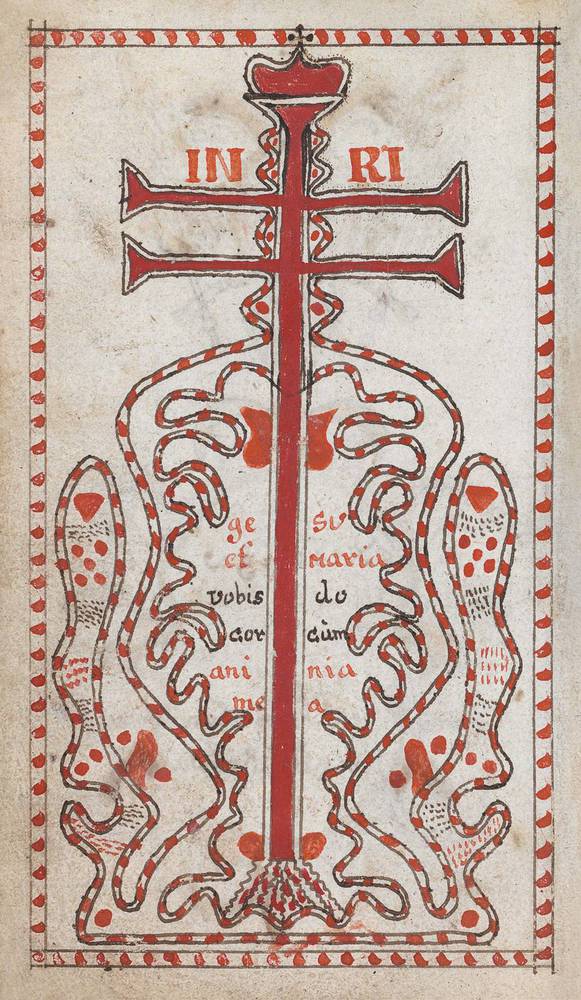 IN RI
ge su
et maria
vobis do
cor cùm
ani nia
me a